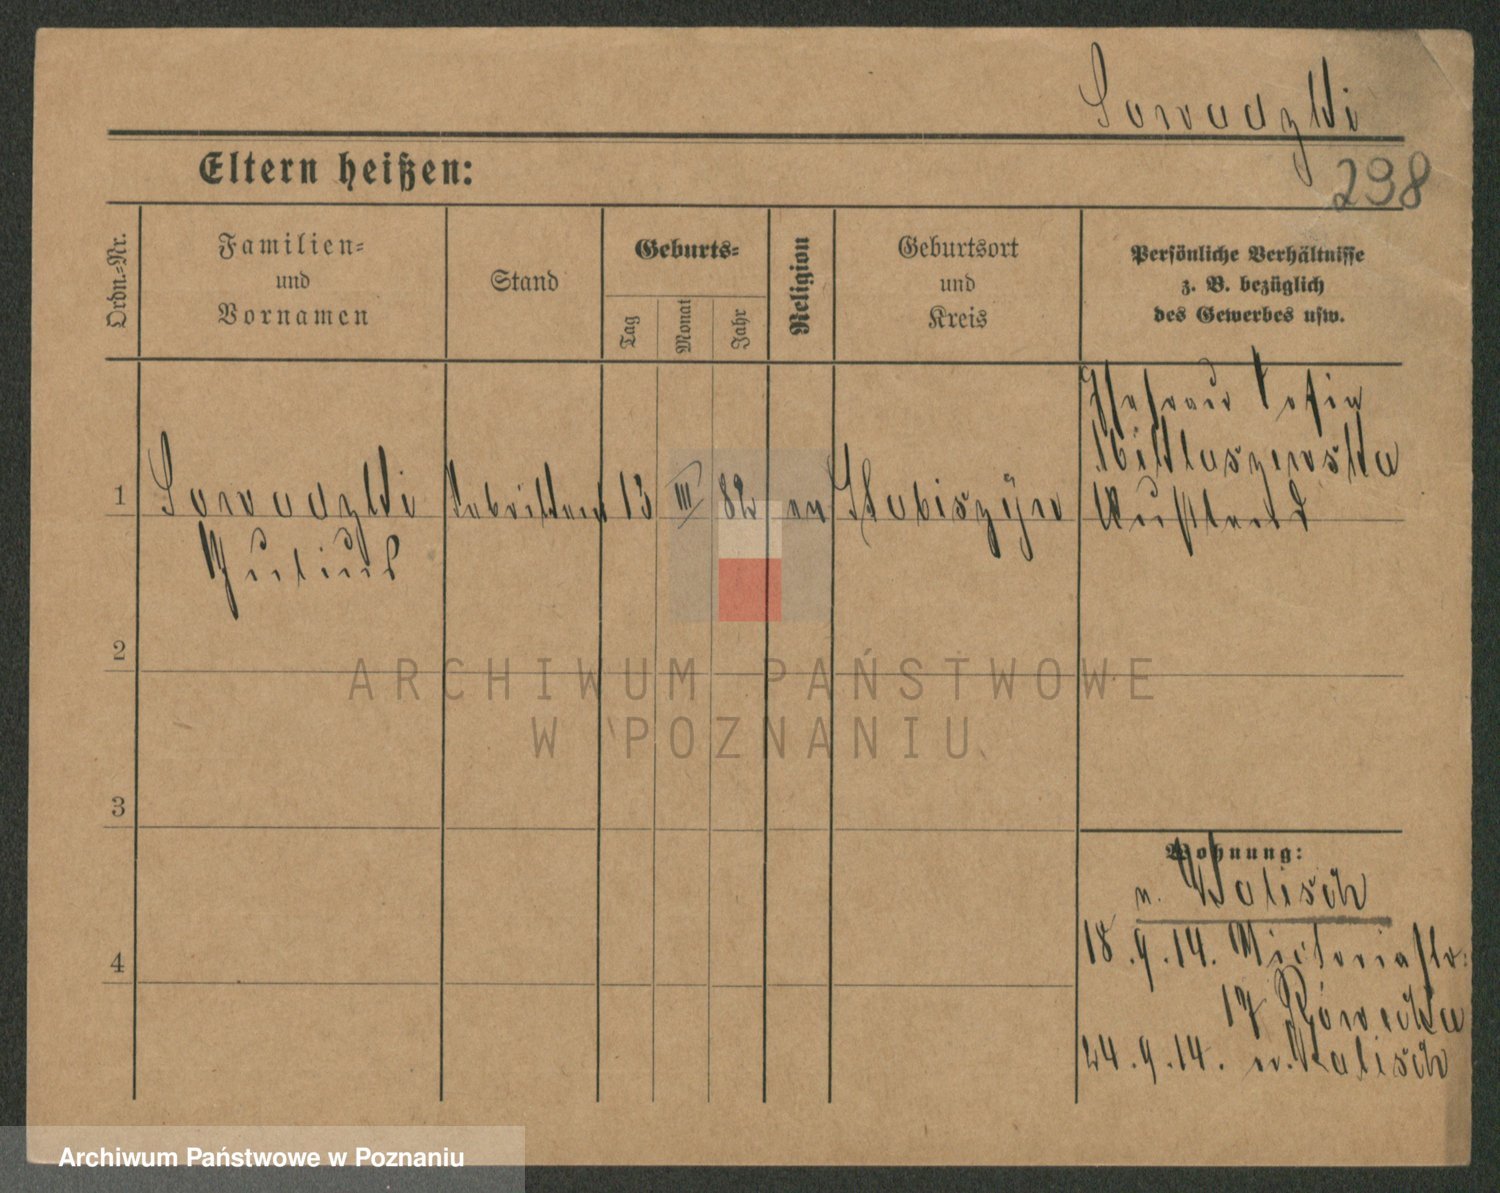 Sowadzki
Eltern heißen:
298
Ordn.-Nr.
Familien-
und
Vornamen
Stand
Geburts-
Tag
Monat
Jahr
Religion
Geburtsort
und
Kreis
Persönliche Verhältnisse
z. B. bezüglich
des Gewerbes usw.
1
Sowadzki
Julius
Fabrikant
13
III
82
ev
Ehefrau
Russland
2
3
4
Wohnung:
n. Kalisch
18.9.14. Victoriastr.
17
24.9.14. n. Kalisch
ARCHIWUM PAŃSTWOWE
W POZNANIU
Archiwum Państwowe w Poznaniu